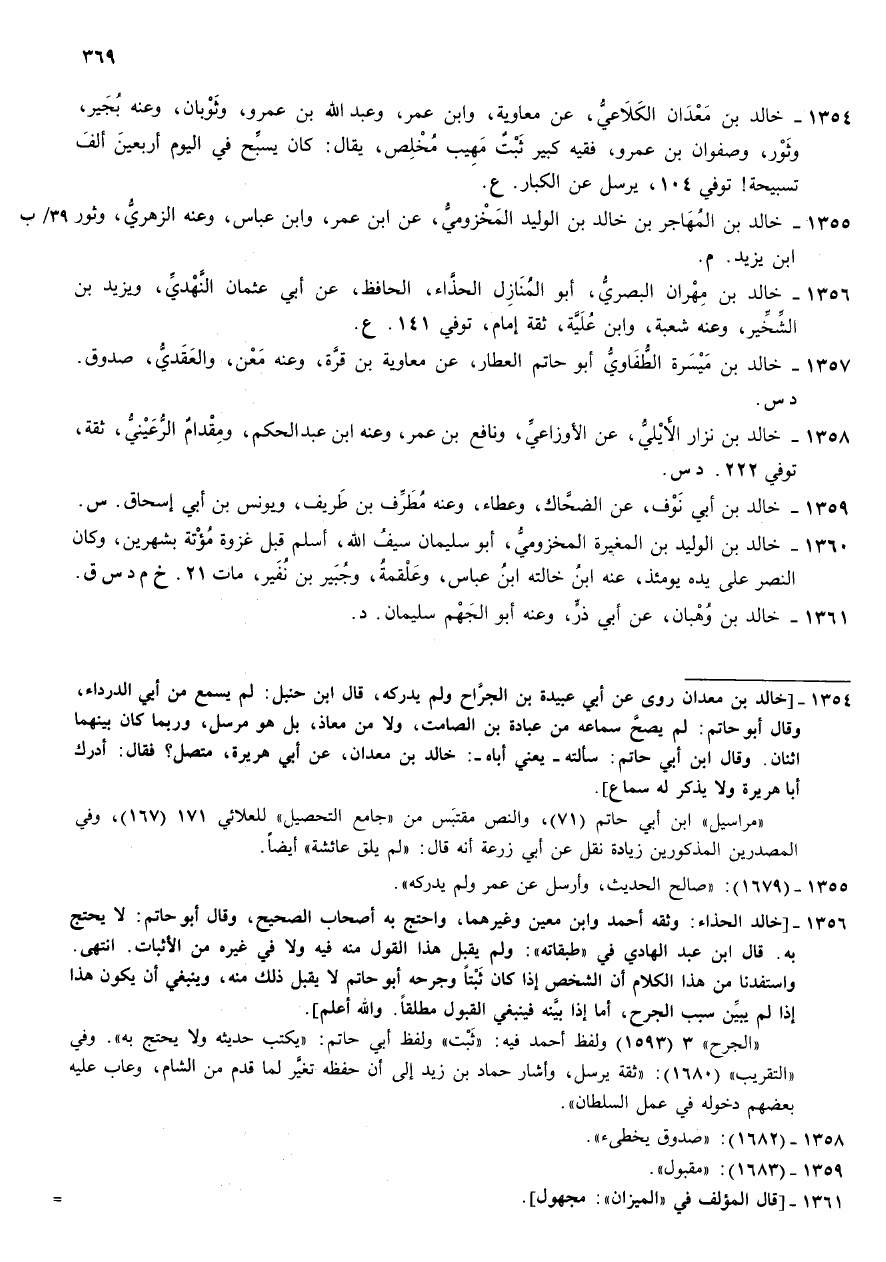 ٣٦٩
١٣٥٤ - خالد بن مَعْدَان الكَلَاعيُّ، عن معاوية، وابن عمر، وعبد الله بن عمرو، وثَوْبان، وعنه بُحَير،
وثَوْر، وصفوان بن عمرو، فقيه كبير ثَبْتٌ مَهِيب مُخْلِص، يقال: كان يسبِّح في اليوم أربعينَ ألفَ
تسبيحة! توفي ١٠٤، يرسل عن الكبار. ع.
١٣٥٥ - خالد بن المُهَاجر بن خالد بن الوليد المَخْزوميُّ، عن ابن عمر، وابن عباس، وعنه الزهريُّ، وثور ٣٩/ ب
ابن يزيد. م.
١٣٥٦ - خالد بن مِهْران البصريُّ، أبو المُنَازِل الحذَّاء، الحافظ، عن أبي عثمان النَّهْديِّ، ويزيد بن
الشِّخِّير، وعنه شعبة، وابن عُلَيَّة، ثقة إمام، توفي ١٤١. ع.
١٣٥٧ - خالد بن مَيْسَرة الطُّفَاويُّ أبو حاتم العطار، عن معاوية بن قرَّة، وعنه مَعْن، والعَقَديُّ، صدوق.
د س.
١٣٥٨ - خالد بن نزار الأَيْليُّ، عن الأوزاعيِّ، ونافع بن عمر، وعنه ابن عبدالحكم، ومِقْدامٌ الرُّعَيْنيُّ، ثقة،
توفي ٢٢٢. د س.
١٣٥٩ - خالد بن أبي نَوْف، عن الضحَّاك، وعطاء، وعنه مُطَرِّف بن طَريف، ويونس بن أبي إسحاق. س.
١٣٦٠ - خالد بن الوليد بن المغيرة المخزوميُّ، أبو سليمان سيفُ الله، أسلم قبل غزوة مُؤْتة بشهرين، وكان
النصر على يده يومئذ، عنه ابنُ خالته ابنُ عباس، وعَلْقمةُ، وجُبَير بن نُفَير، مات ٢١. خ م د س ق.
١٣٦١ - خالد بن وُهْبان، عن أبي ذرٍّ، وعنه أبو الجَهْم سليمان. د.
١٣٥٤ -[خالد بن معدان روى عن أبي عبيدة بن الجرَّاح ولم يدركه، قال ابن حنبل: لم يسمع من أبي الدرداء،
وقال أبو حاتم: لم يصحَّ سماعه من عبادة بن الصامت، ولا من معاذ، بل هو مرسل، وربما كان بينهما
اثنان. وقال ابن أبي حاتم: سألته - يعني أباه -: خالد بن معدان، عن أبي هريرة، متصل؟ فقال: أدرك
أبا هريرة ولا يذكر له سماع].
«مراسيل» ابن أبي حاتم (٧١)، والنص مقتبَس من «جامع التحصيل» للعلائي ١٧١ (١٦٧)، وفي
المصدرين المذكورين زيادة نقل عن أبي زرعة أنه قال: «لم يلق عائشة» أيضاً.
١٣٥٥ -(١٦٧٩): «صالح الحديث، وأرسل عن عمر ولم يدركه».
١٣٥٦ -[خالد الحذاء: وثقه أحمد وابن معين وغيرهما، واحتج به أصحاب الصحيح، وقال أبو حاتم: لا يحتج
به. قال ابن عبد الهادي في «طبقاته»: ولم يقبل هذا القول منه فيه ولا في غيره من الأثبات. انتهى.
واستفدنا من هذا الكلام أن الشخص إذا كان ثَبْتاً وجرحه أبو حاتم لا يقبل ذلك منه، وينبغي أن يكون هذا
إذا لم يبيِّن سبب الجرح، أما إذا بيَّنه فينبغي القبول مطلقاً. والله أعلم].
«الجرح» ٣ (١٥٩٣) ولفظ أحمد فيه: «ثَبْت» ولفظ أبي حاتم: «يكتب حديثه ولا يحتج به». وفي
«التقريب» (١٦٨٠): «ثقة يرسل، وأشار حماد بن زيد إلى أن حفظه تغيَّر لما قدم من الشام، وعاب عليه
بعضهم دخوله في عمل السلطان».
١٣٥٨ -(١٦٨٢): «صدوق يخطىء».
١٣٥٩ -(١٦٨٣): «مقبول».
١٣٦١ -[قال المؤلف في «الميزان»: مجهول].
=